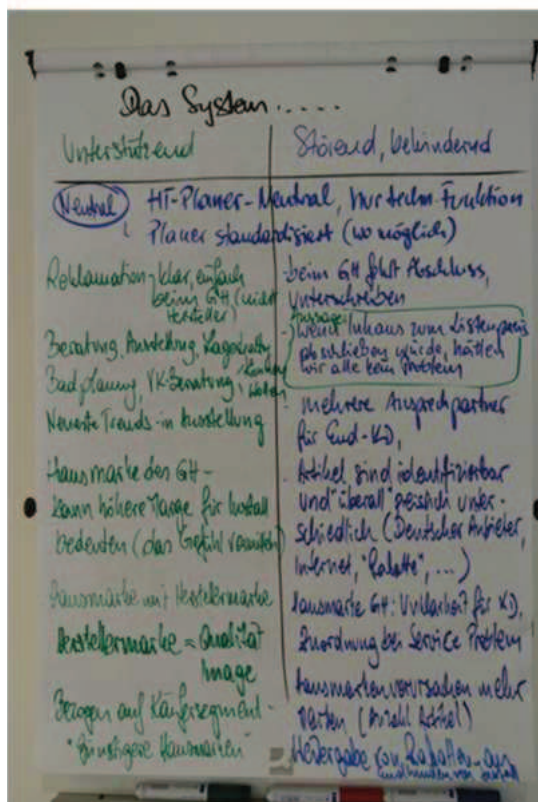 Das System.....
Unterstützend
Störend, behindernd
Neutral
HT-Planer-Neutral, nur techn. Funktion
Planer standardisiert (wo möglich)
Reklamation-klar, einfach
beim GH (nicht
Hersteller)
Beratung, Ausstellung,
Badplanung, VK-Beratung,
Neueste Trends-in Ausstellung
Hausmarke des GH-
kann höhere Marge für Install
bedeuten (das Gefühl
Hausmarke mit Herstellermarke
Herstellermarke = Qualität
Image
Bezogen auf Käufersegment-
"Günstigere Hausmarken"
-beim GH fehlt Abschluss,
Unterschreiben
Aussage:
- wenn Inhaus zum Listenpreis
abschließen würde, hätten
wir alle kein Problem
- mehrere Ansprechpartner
für End-KD,
- Artikel sind identifizierbar
und "überall" preislich unter-
schiedlich (Deutscher Anbieter,
Internet, "Rabatte", ...)
Hausmarke GH: Unklarheit für KD,
Zuordnung bei Service Problem
Hausmarken verursachen mehr
(Anzahl Artikel)
Weitergabe von Rabatten